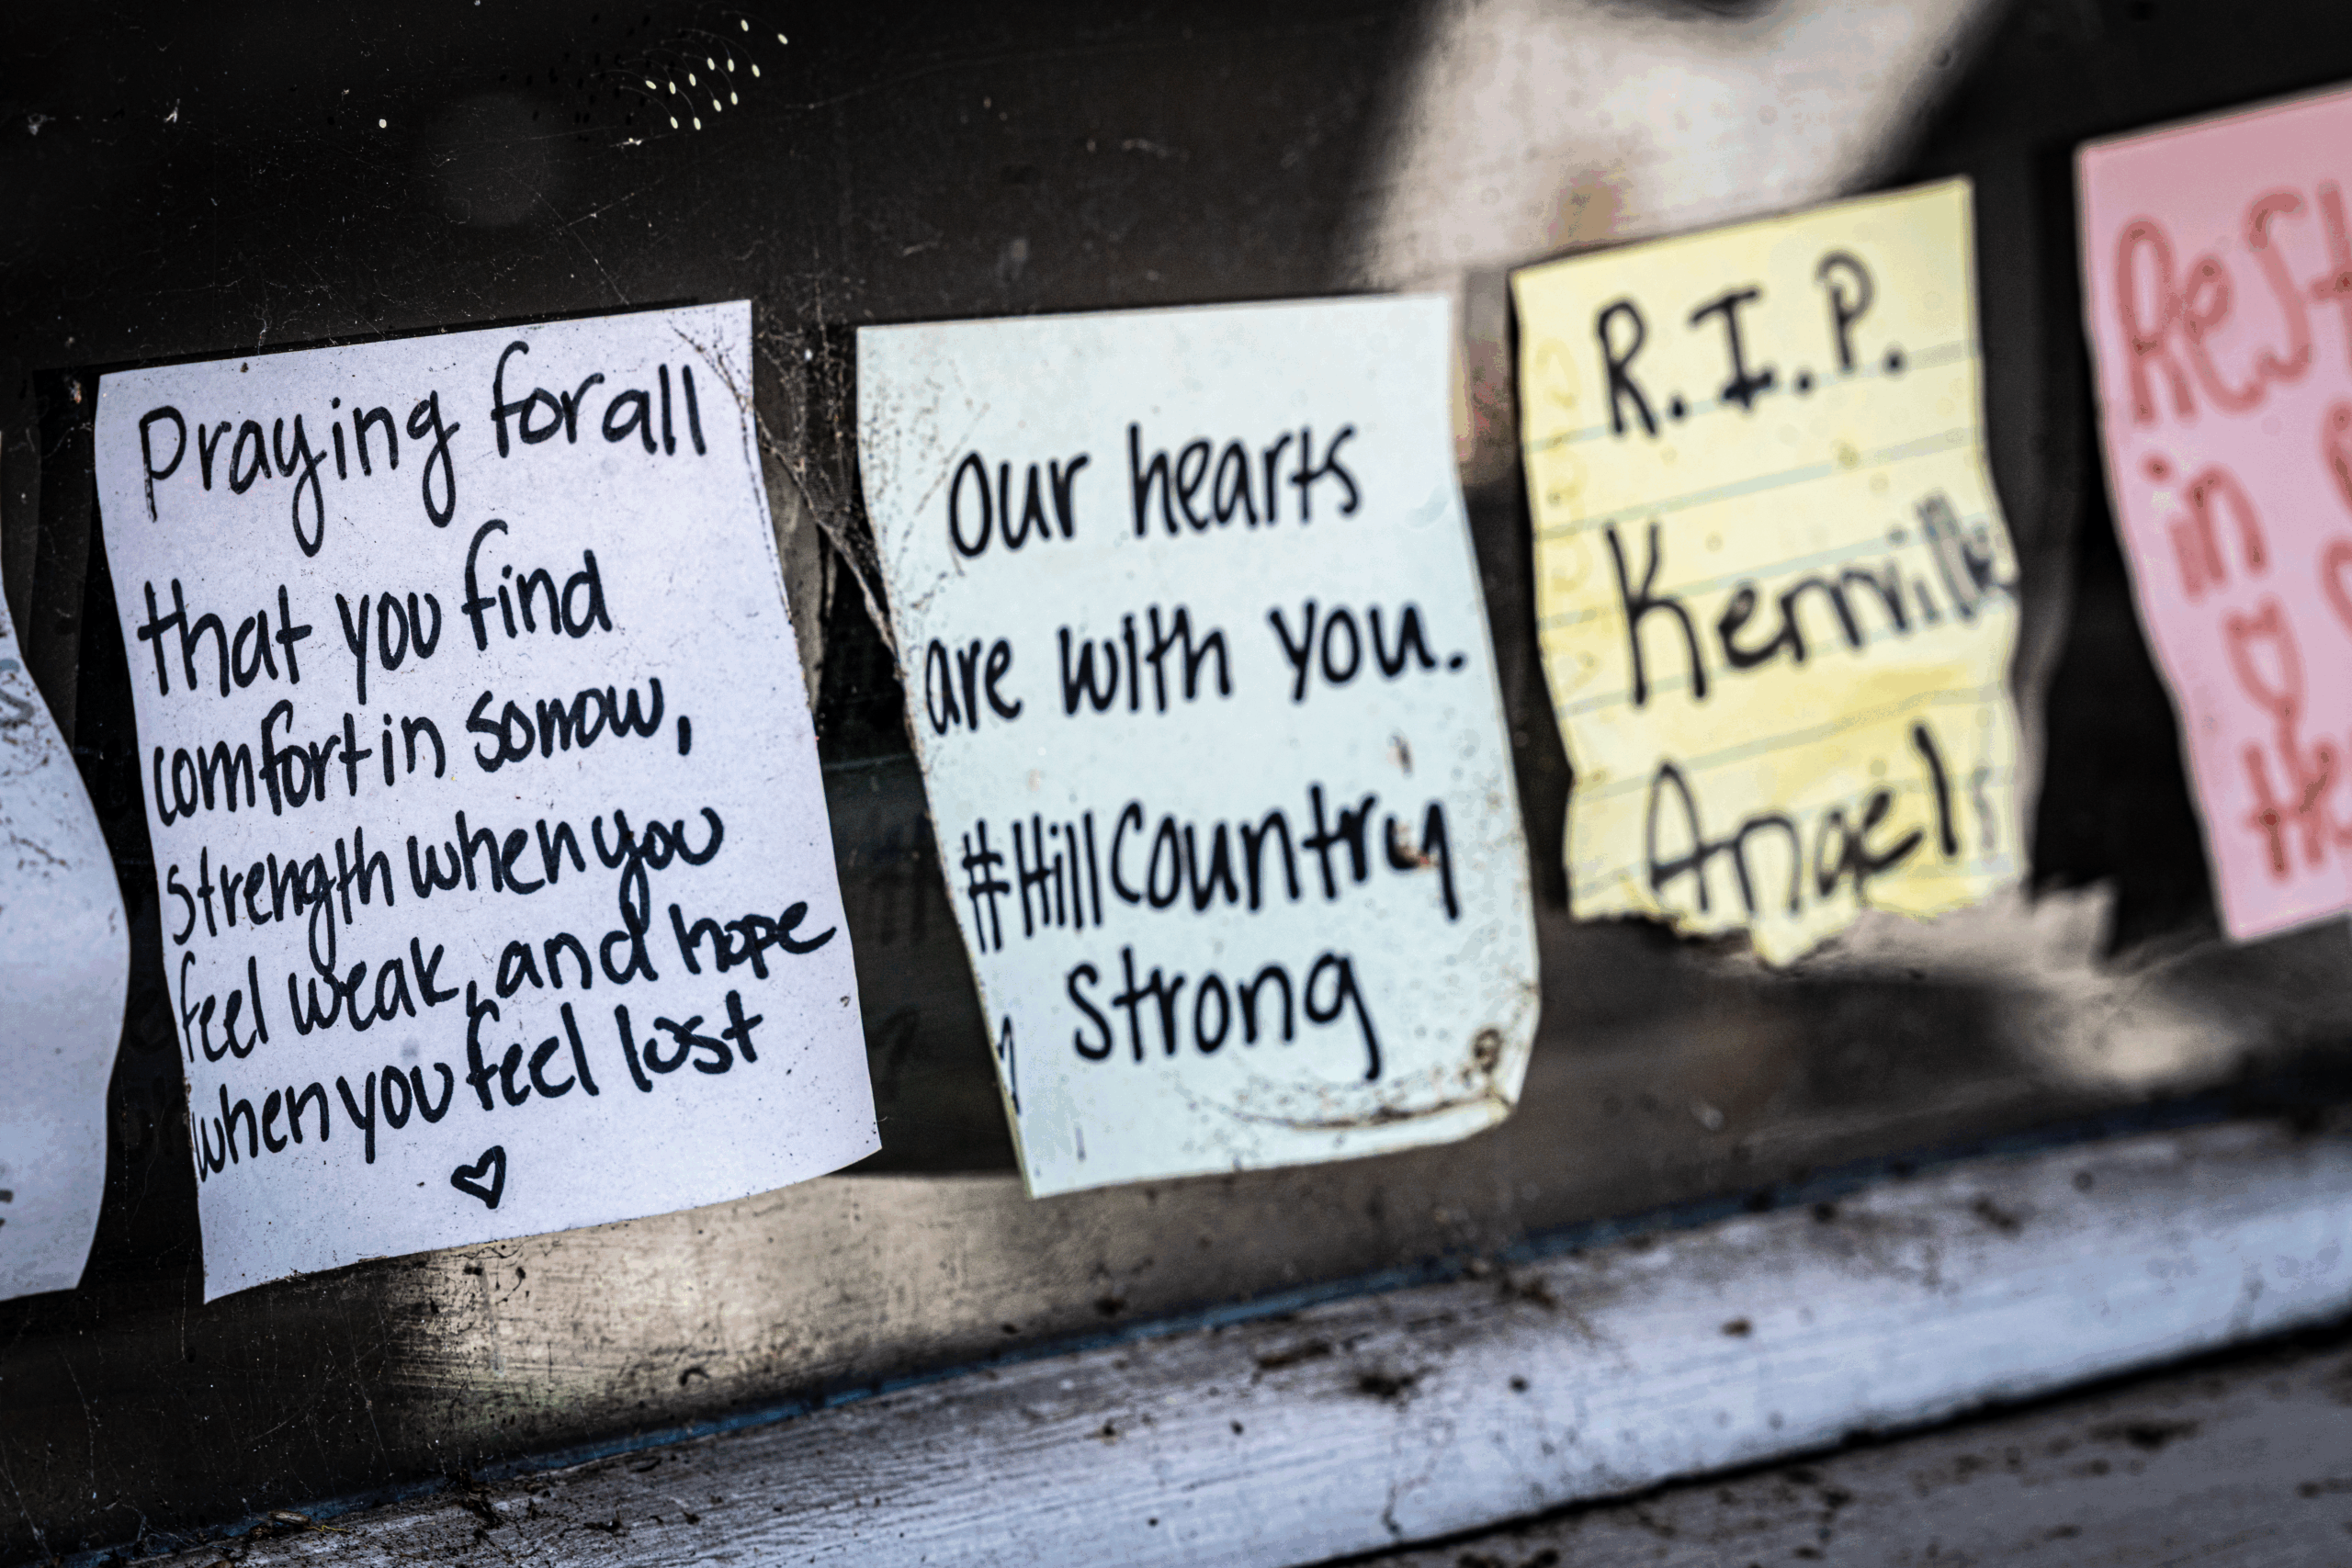 Praying for all
that you find
comfort in sorrow,
strength when you
feel weak, and hope
when you feel lost
♡
our hearts
are with you.
#HillCountry
strong
R.I.P.
Kerrville
Angels
Rest
in